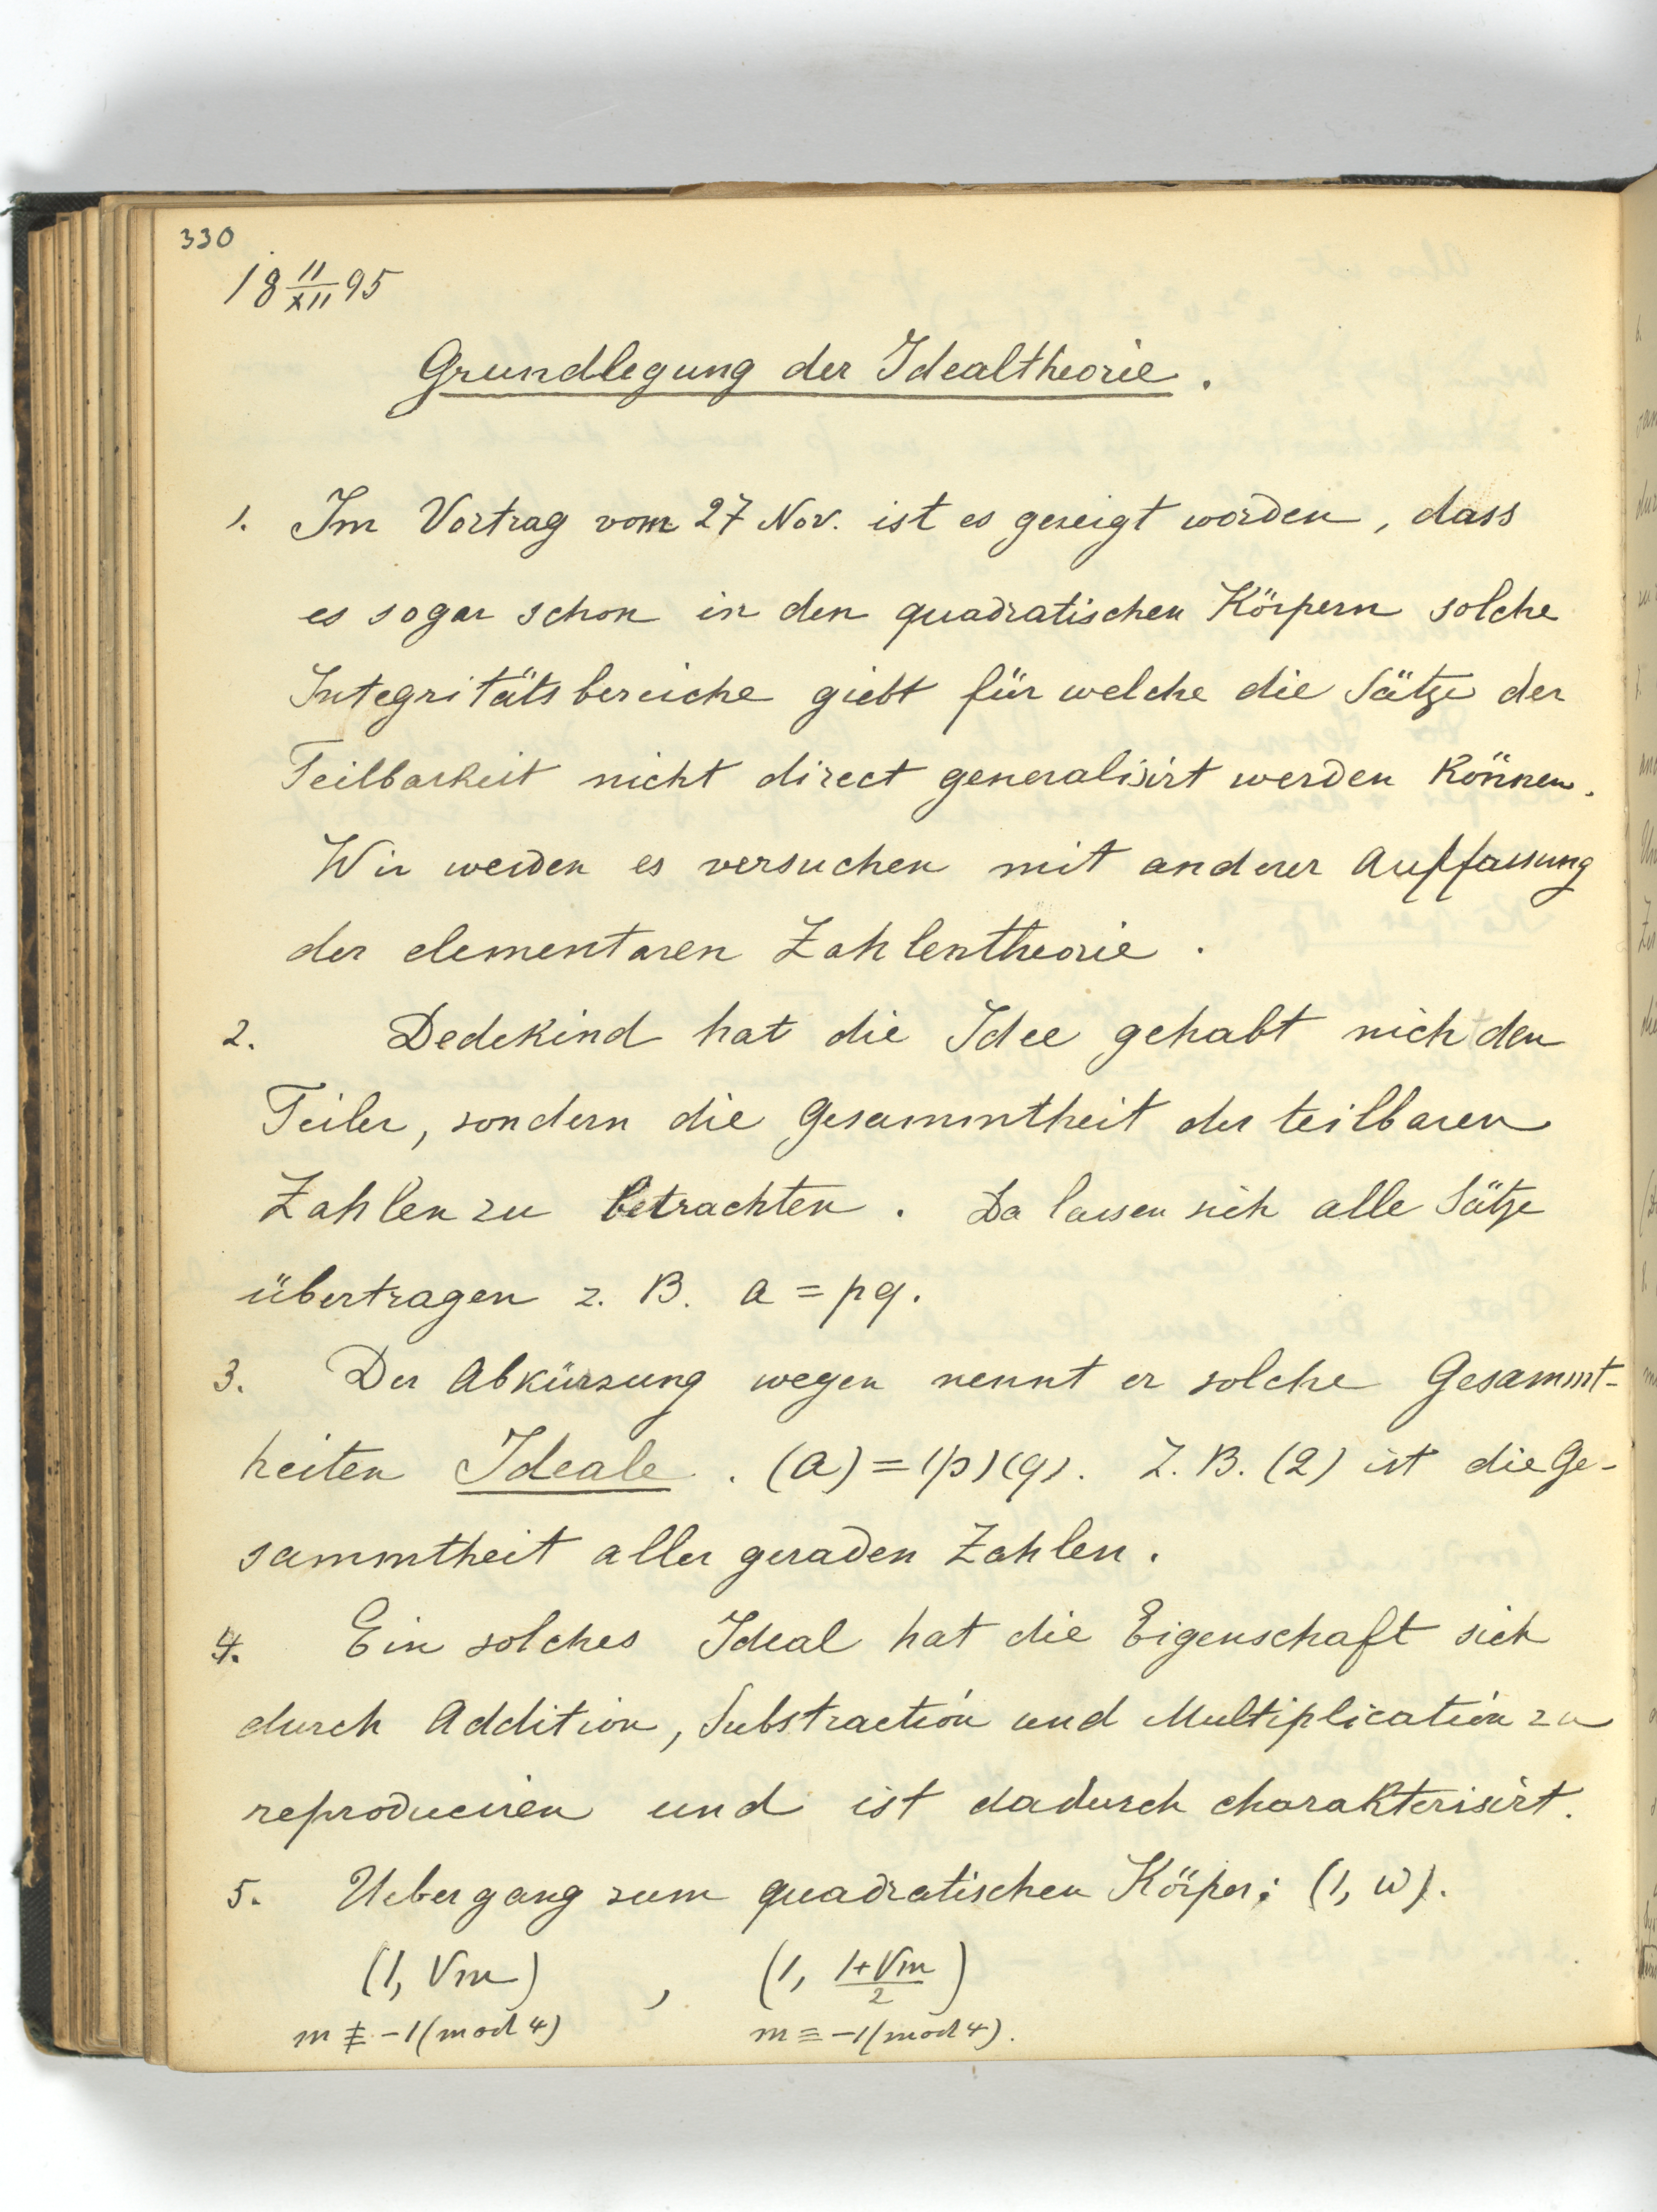 330
18 11/XII 95
Grundlegung der Idealtheorie.
1. Im Vortrag vom 27 Nov. ist es gezeigt worden, dass
es sogar schon in den quadratischen Körpern solche
Integritätsbereiche giebt für welche die Sätze der
Teilbarkeit nicht direct generalisirt werden können.
Wir werden es versuchen mit anderer Auffassung
der elementaren Zahlentheorie.
2. Dedekind hat die Idee gehabt nicht den
Teiler, sondern die Gesammtheit der teilbaren
Zahlen zu betrachten. Da lassen sich alle Sätze
übertragen z. B. a = pq.
3. Der Abkürzung wegen nennt er solche Gesammt-
heiten Ideale. (a) = (p)(q). Z. B. (2) ist die Ge-
sammtheit aller geraden Zahlen.
4. Ein solches Ideal hat die Eigenschaft sich
durch Addition, Substraction und Multiplication zu
reproduciren und ist dadurch charakterisirt.
5. Uebergang zum quadratischen Körper; (1, ω).
(1, √m) , (1, (1+√m)/2)
m ≢ -1 (mod 4) m ≡ -1 (mod 4).